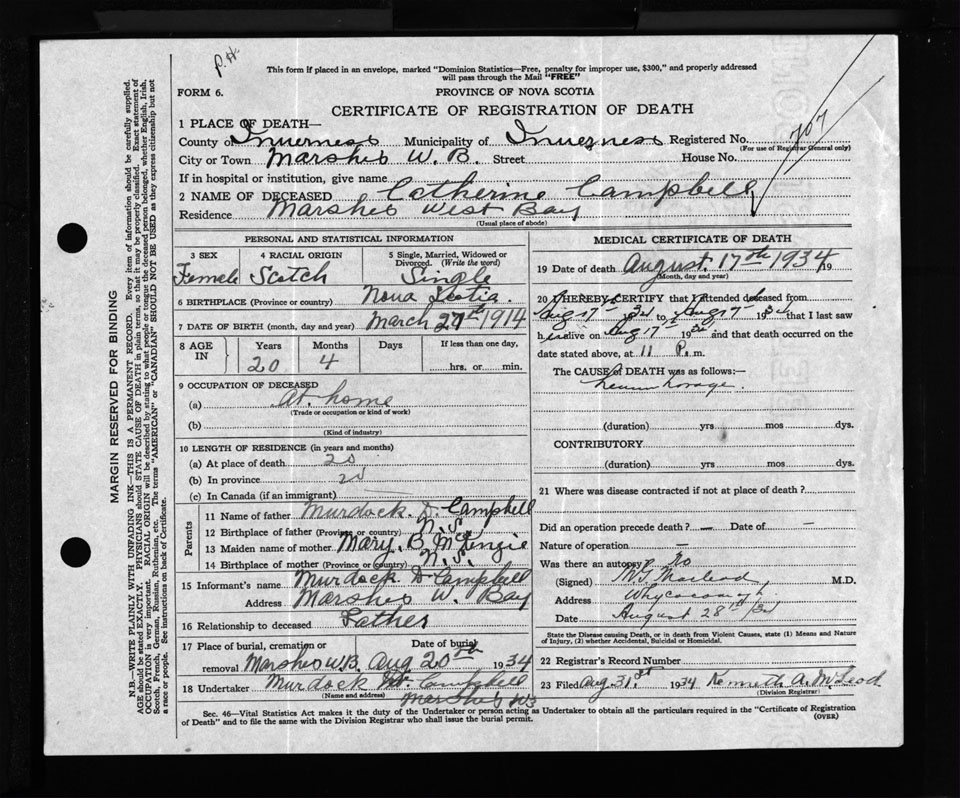 P.H.
This form if placed in an envelope, marked "Dominion Statistics—Free, penalty for improper use, $300," and properly addressed
will pass through the Mail "FREE"
FORM 6.
PROVINCE OF NOVA SCOTIA
CERTIFICATE OF REGISTRATION OF DEATH
1 PLACE OF DEATH—
County of Inverness Municipality of Inverness Registered No. 707
(For use of Registrar General only)
City or Town Marshes W. B. Street House No.
If in hospital or institution, give name
2 NAME OF DECEASED Catherine Campbell
Residence Marshes West Bay
(Usual place of abode)
PERSONAL AND STATISTICAL INFORMATION
3 SEX 4 RACIAL ORIGIN 5 Single, Married, Widowed or Divorced. (Write the word)
Female Scotch Single
6 BIRTHPLACE (Province or country) Nova Scotia.
7 DATE OF BIRTH (month, day and year) March 27th 1914
8 AGE IN Years Months Days If less than one day,
20 4 hrs. or min.
9 OCCUPATION OF DECEASED
(a) At home
(Trade or occupation or kind of work)
(b)
(Kind of industry)
10 LENGTH OF RESIDENCE (in years and months)
(a) At place of death 20
(b) In province 20
(c) In Canada (if an immigrant)
Parents
11 Name of father Murdock. D. Campbell
12 Birthplace of father (Province or country) N.S.
13 Maiden name of mother Mary. B McKenzie
14 Birthplace of mother (Province or country) N.S.
15 Informant's name Murdock D Campbell
Address Marshes W. Bay
16 Relationship to deceased Father
17 Place of burial, cremation or removal Marshes W.B. Date of burial Aug 20th 1934
18 Undertaker Murdock Campbell
(Name and address) Marshes WB
MEDICAL CERTIFICATE OF DEATH
19 Date of death August. 17th 1934 19
(Month, day and year)
20 I HEREBY CERTIFY that I attended deceased from
Aug 17th 34 to Aug 17th 1934 that I last saw
her alive on Aug 17th 1934 and that death occurred on the
date stated above, at 11 P. m.
The CAUSE OF DEATH was as follows:—
(duration) yrs mos dys.
CONTRIBUTORY
(duration) yrs. mos. dys.
21 Where was disease contracted if not at place of death?
Did an operation precede death? — Date of —
Nature of operation —
Was there an autopsy? No
(Signed) Macleod M.D.
Address Whycocomagh
Date August 28th 34
State the Disease causing Death, or in death from Violent Causes, state (1) Means and Nature
of Injury, (2) whether Accidental, Suicidal or Homicidal.
22 Registrar's Record Number
23 Filed Aug 31st 1934 Kenneth A. McLeod
(Division Registrar)
Sec. 46—Vital Statistics Act makes it the duty of the Undertaker or person acting as Undertaker to obtain all the particulars required in the "Certificate of Registration
of Death" and to file the same with the Division Registrar who shall issue the burial permit. (OVER)
MARGIN RESERVED FOR BINDING
N.B.—WRITE PLAINLY WITH UNFADING INK—THIS IS A PERMANENT RECORD. Every item of information should be carefully supplied.
AGE should be stated EXACTLY. PHYSICIANS should STATE CAUSE OF DEATH in plain terms, so that it may be properly classified. Exact statement of
OCCUPATION is very important. RACIAL ORIGIN will be described by stating to what people or tongue the deceased person belonged, whether English, Irish,
Scotch, French, German, Russian, Ruthenian, etc. The terms "AMERICAN" or "CANADIAN" SHOULD NOT BE USED as they express citizenship but not
a race or people. See instructions on back of Certificate.